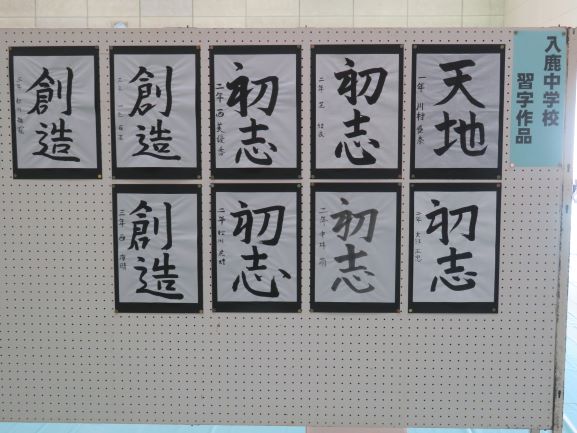 入鹿中学校
習字作品
天地
一年 川村
初志
二年
初志
二年 西 美優香
創造
創造
三年
初志
二年
初志
二年 中井
初志
二年 松川
創造
三年 西